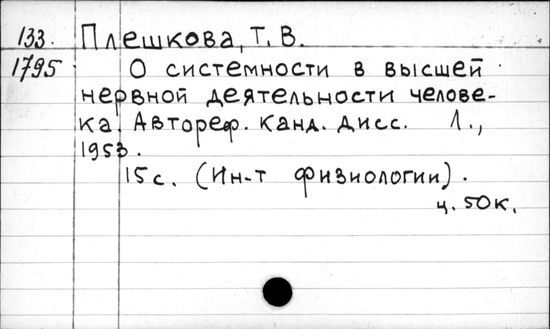 133. Плешкова, Т. В.
1795 О системности в высшей
нервной деятельности челове-
ка. Автореф. канд. дисс. Л.,
1953.
15 с. (Ин-т физиологии).
ц. 50 к.